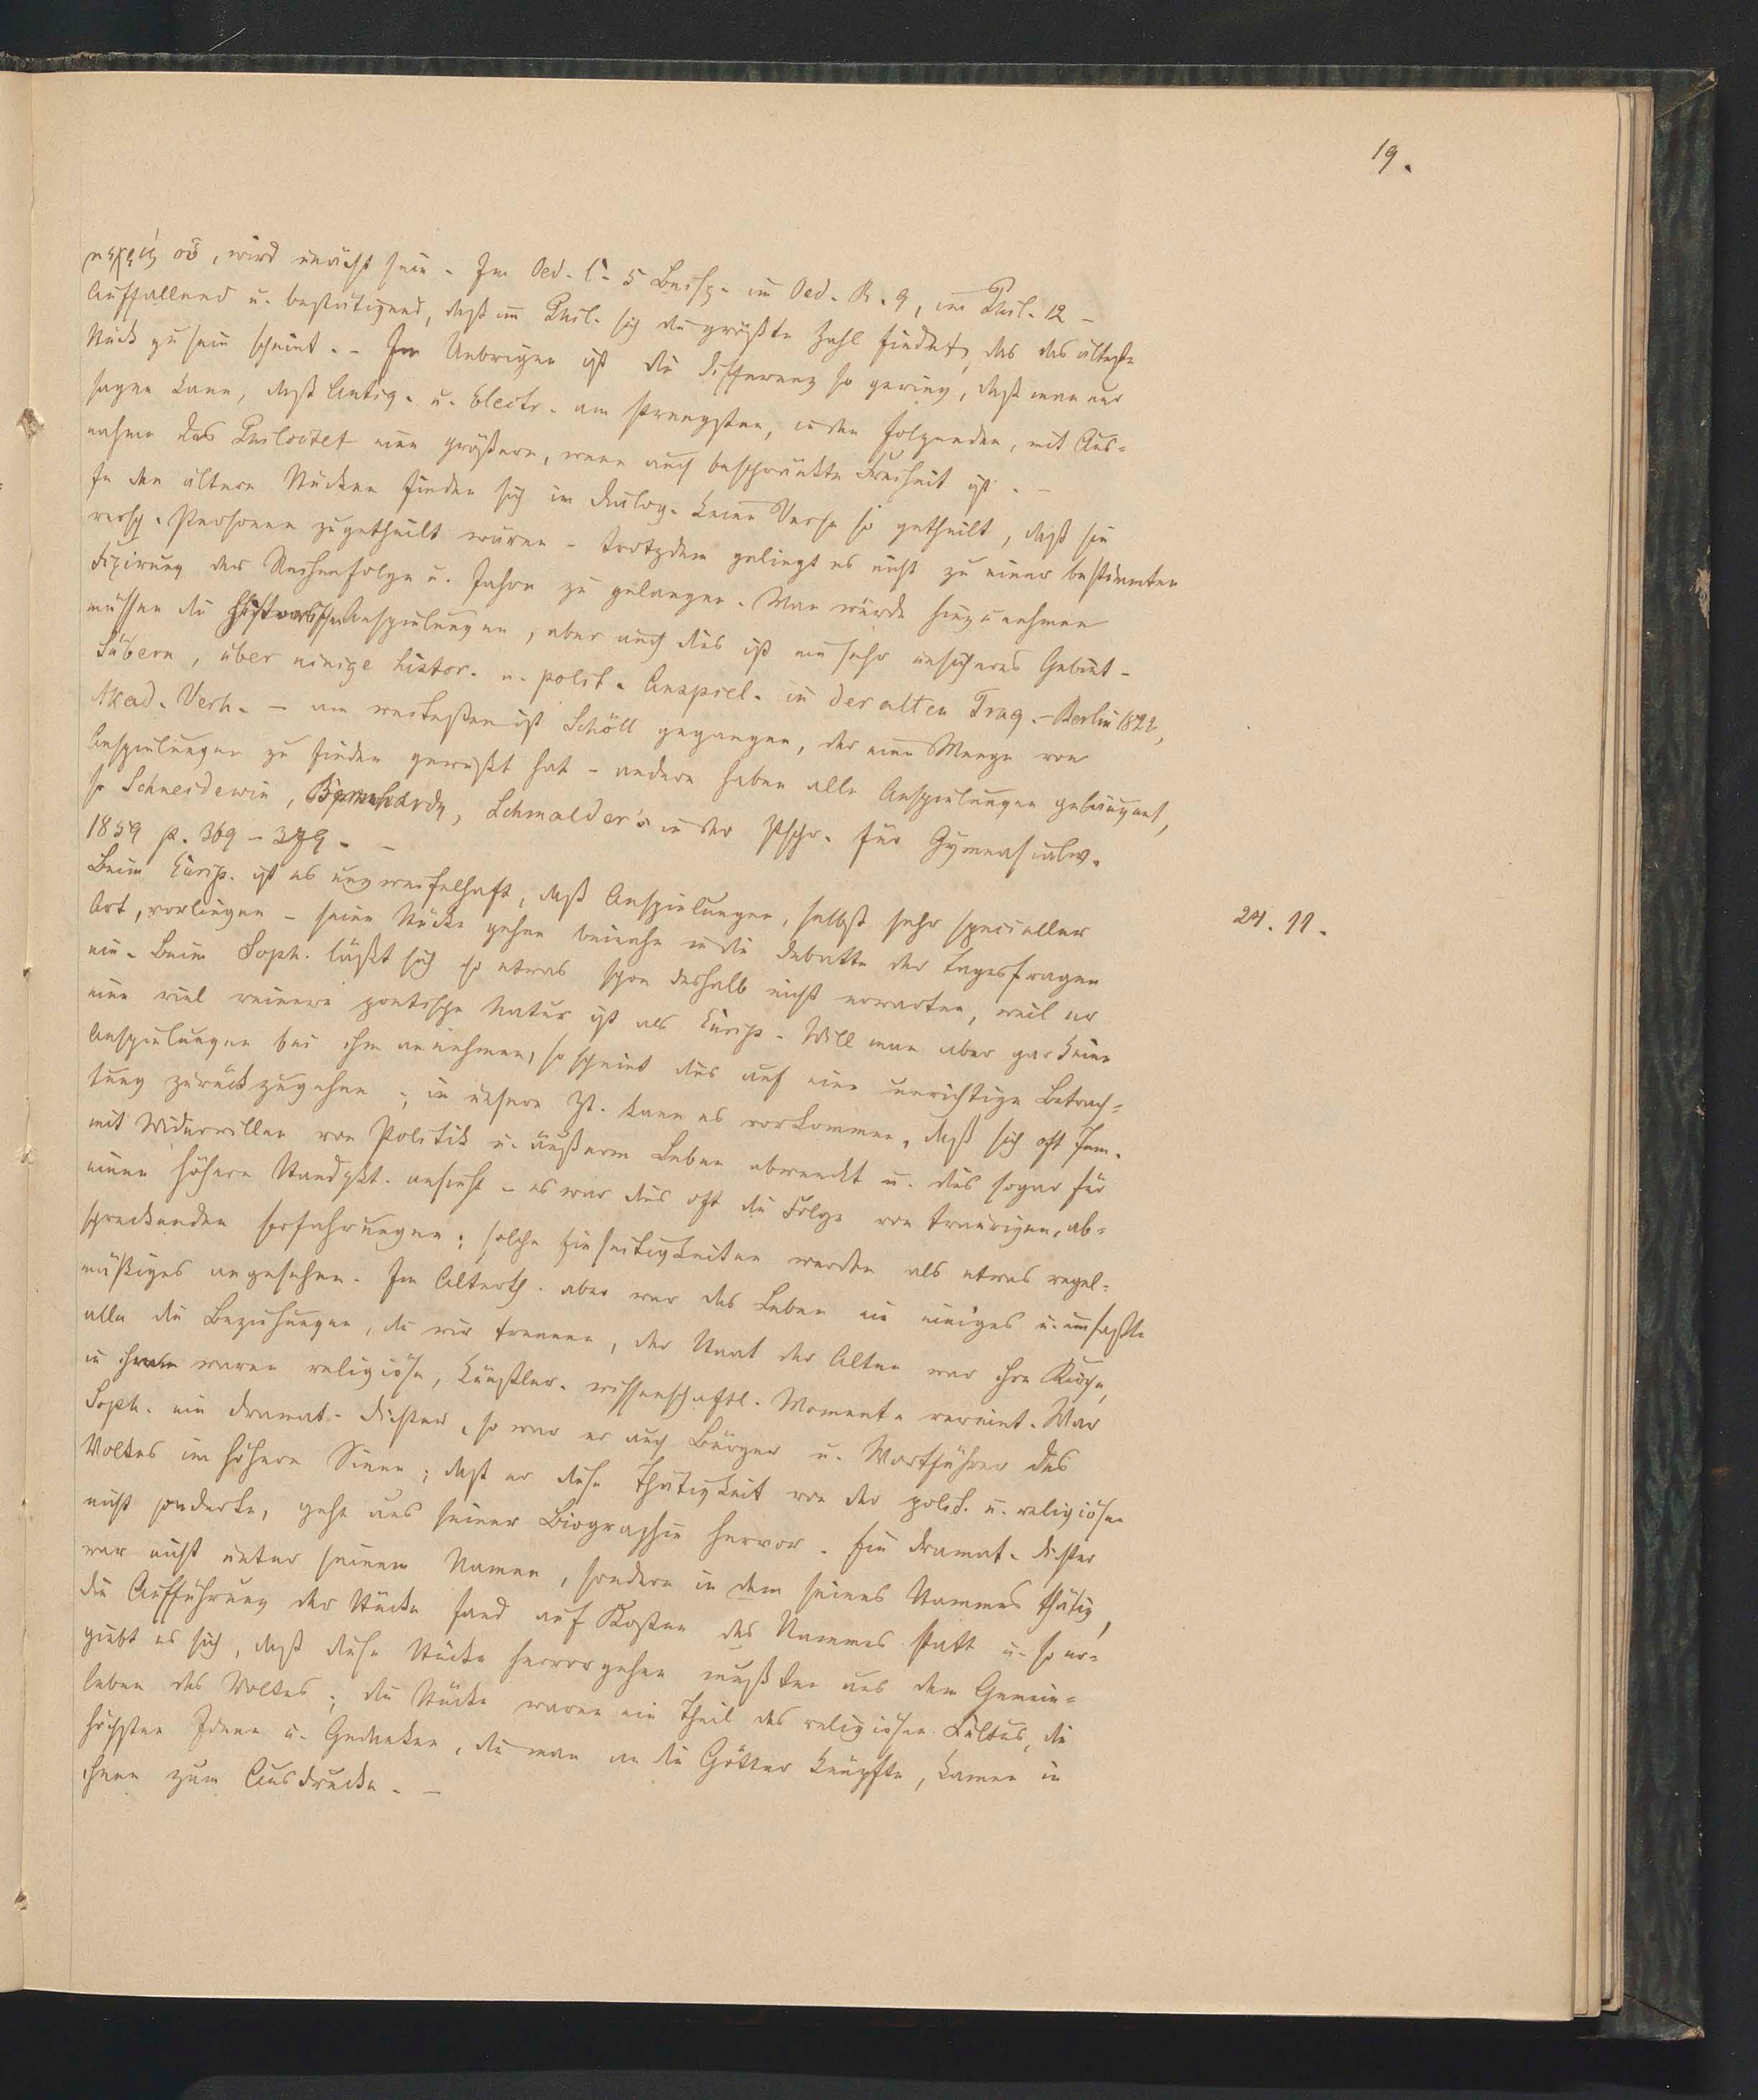 19.
οὖ, wird unächt sein. Im Oed. C. 5 Beisp. im Oed. R. 9, im Phil. 12 -
Auffallend u. bestätigend, daß im Phil. sich die größte Zahl findet, das das älteste
Stück zu sein scheint. - Im Uebrigen ist die Differenz so gering, daß man nur
sagen kann, daß Antig. u. Electr. am strengsten, in den folgenden, mit Aus-
nahme des Philoctet eine größere, wenn auch beschränkte Freiheit ist. -
In den älteren Stücken finden sich im Dialog. keine Verse so getheilt, daß sie
versch. Personen zugetheilt wären - trotzdem gelingt es nicht zu einer bestimmten
Fixirung der Reihenfolge u. Jahre zu gelangen. Man würde hinzunehmen
müssen die historischen Anspielungen, aber auch dies ist ein sehr unsicheres Gebiet -
Süvern, über einige histor. u. polit. Anspiel. in der alten Trag. - Berlin 1822,
Akad. Verh. - am weitesten ist Schöll gegangen, der eine Menge von
Anspielungen zu finden gewußt hat - andere haben alle Anspielungen geläugnet,
so Schneidewin, Bernhardy, Schmalder's in der Ztschr. für Gymnasialw.
1859 p. 369 - 379. -
Beim Eurip. ist es unzweifelhaft, daß Anspielungen, selbst sehr specieller
24. 11.
Art, vorliegen - seine Stücke gehen beinahe in die Debatte der Tagesfragen
ein. Beim Soph. läßt sich so etwas schon deshalb nicht erwarten, weil er
eine viel reinere poetische Natur ist als Eurip. - Will man aber gar keine
Anspielungen bei ihm annehmen, so scheint dies auf eine unrichtige Betrach-
tung zurückzugehen; in unsern Zt. kann es vorkommen, daß sich oft Jem.
mit Widerwillen von Politik u. äußerm Leben abwendet u. dies sogar für
einen höhern Standpkt. ansieht - es war dies oft die Folge von traurigen, ab-
schreckenden Erfahrungen; solche Einseitigkeiten werden als etwas regel-
mäßiges angesehen. Im Alterth. aber war das Leben ein einiges u. umfaßte
alle die Beziehungen, die wir trennen, der Staat der Alten war ihre Kirche,
in ihnen waren religiöse, künstler. wissenschaftl. Momente vereint. War
Soph. ein dramat. Dichter, so war er auch Bürger u. Wortführer des
Volkes im höhern Sinne; daß er diese Thätigkeit von der polit. u. religiösen
nicht sonderte, geht aus seiner Biographie hervor. Ein dramat. Dichter
war nicht unter seinem Namen, sondern in dem seines Stammes thätig,
die Aufführung der Stücke fand auf Kosten des Stammes statt u. so er-
giebt es sich, daß diese Stücke hervorgehen mußten aus dem Gemein-
leben des Volkes; die Stücke waren ein Theil des religiösen Kultus, die
höchsten Ideen u. Gedanken, die man an die Götter knüpfte, kamen in
ihnen zum Ausdrucke. -